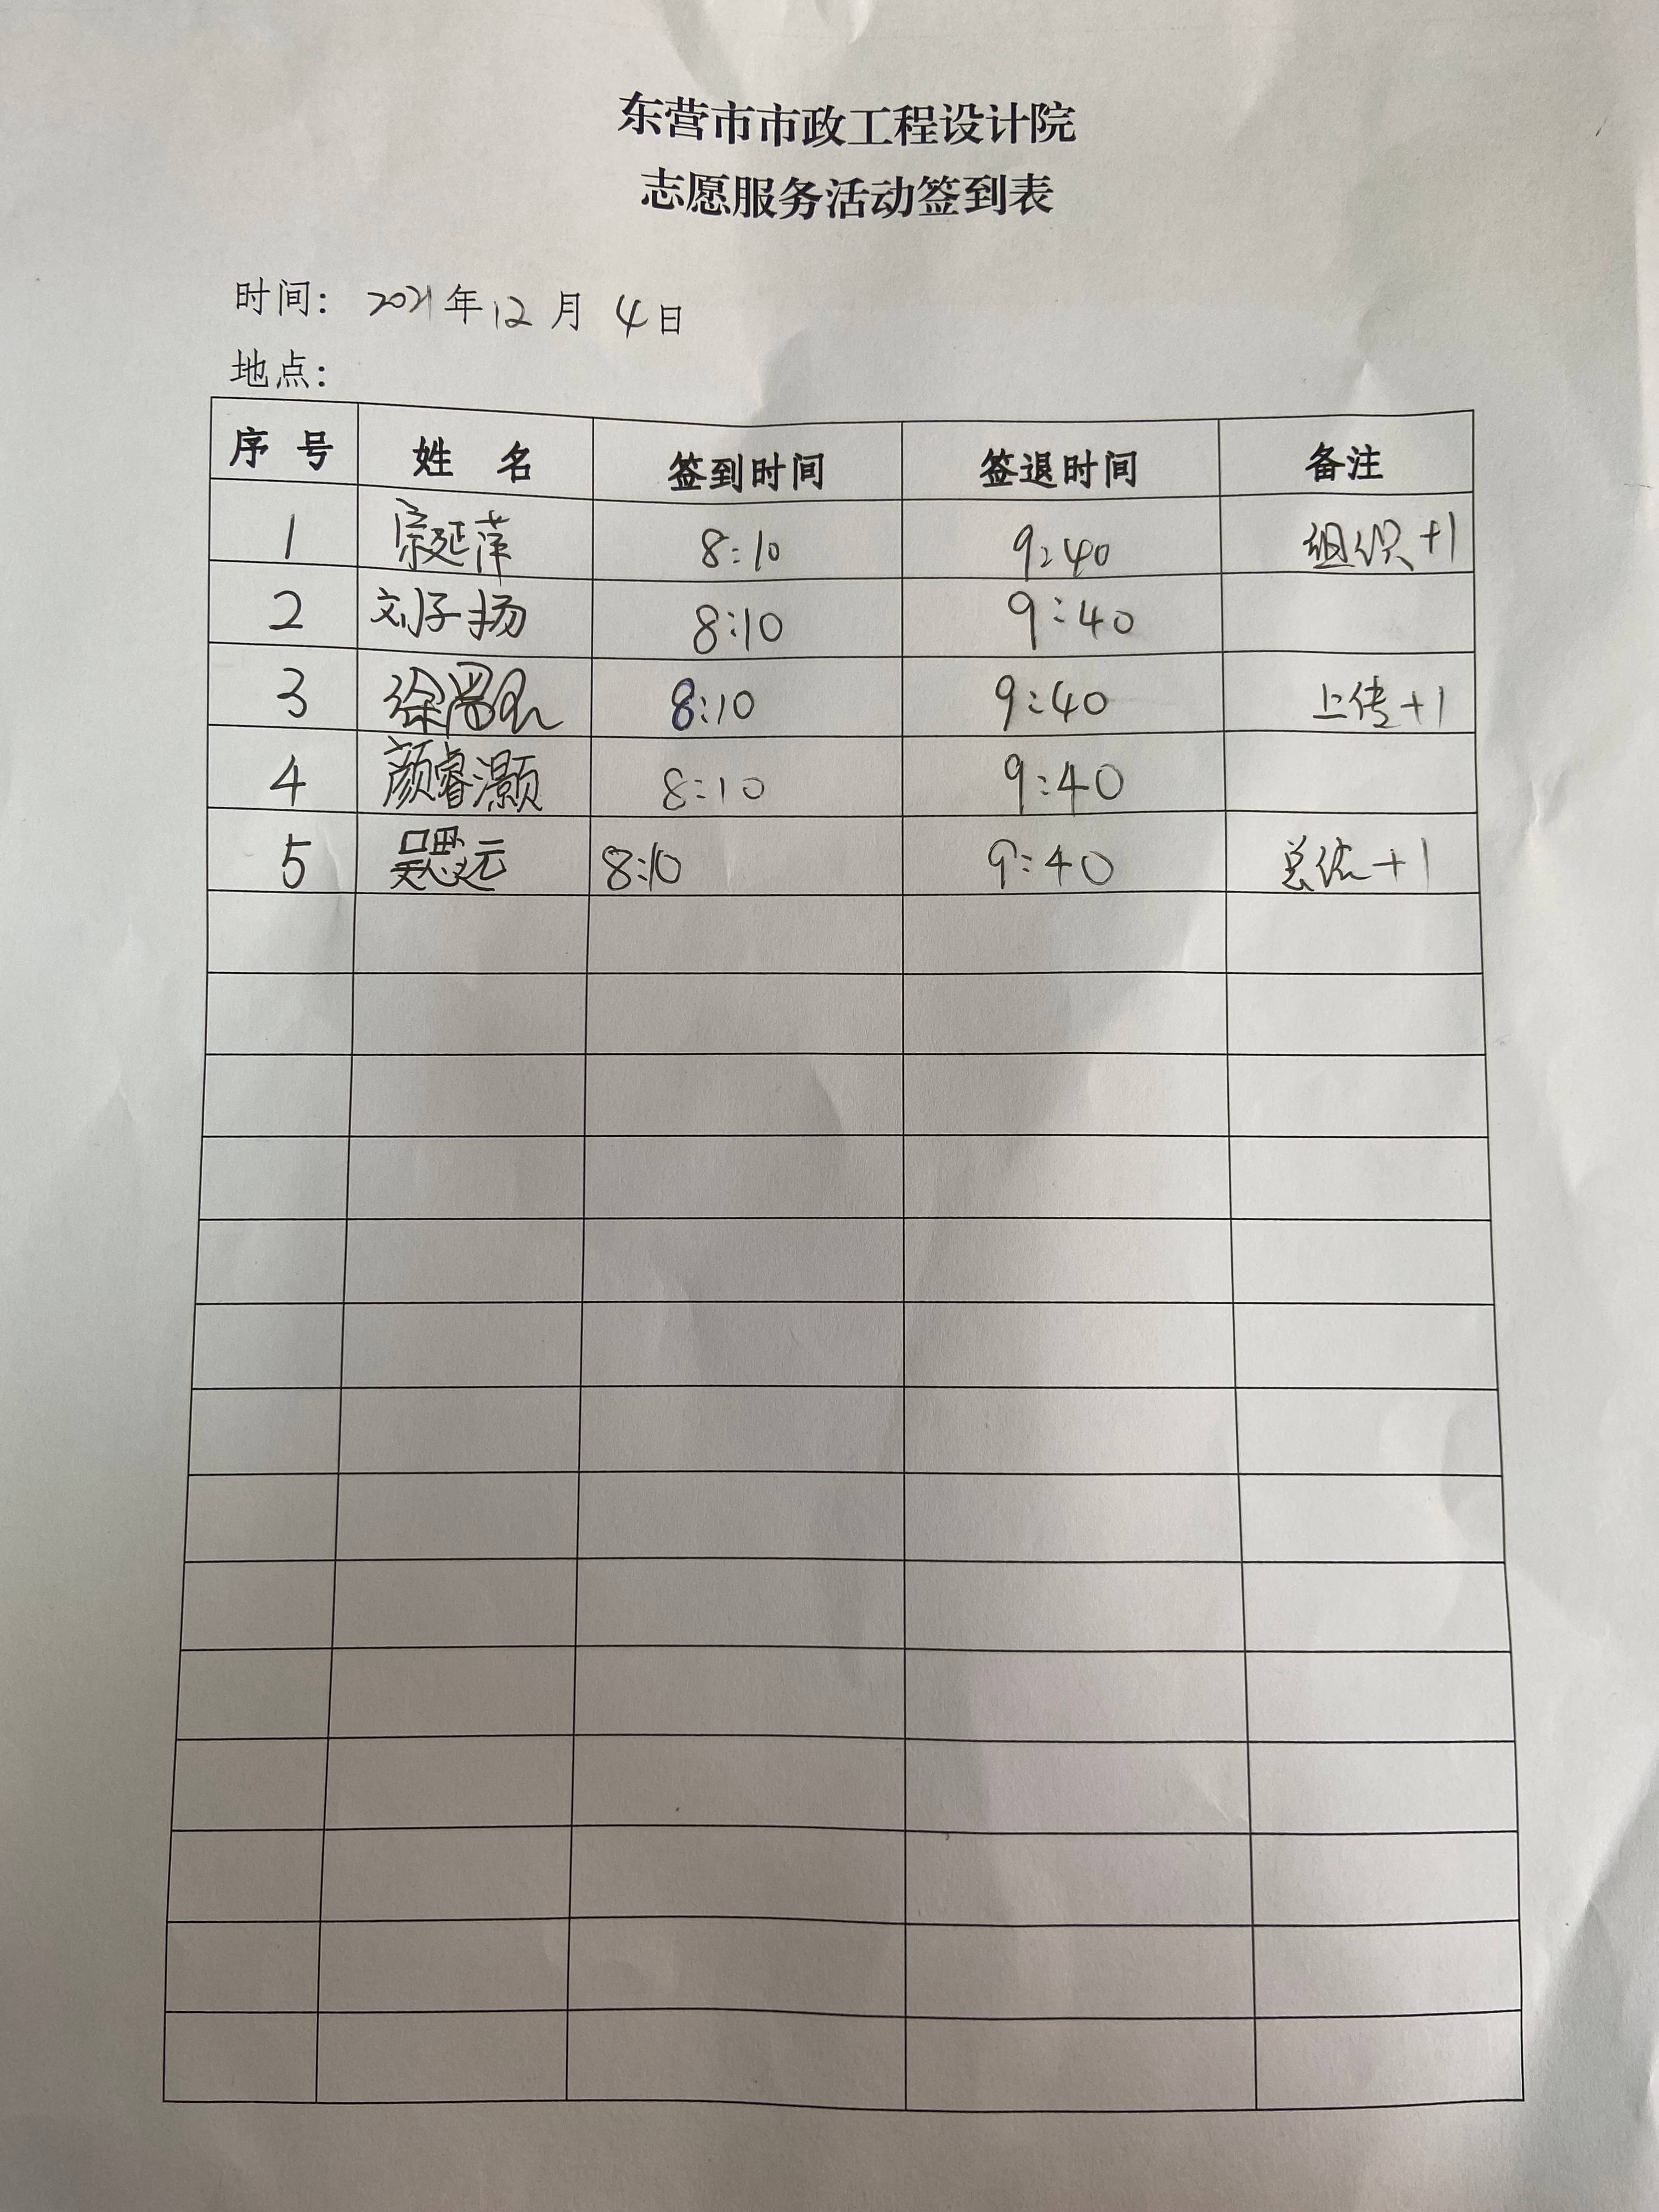 东营市市政工程设计院
志愿服务活动签到表
时间: 2021年12月4日
地点:
序号 姓名 签到时间 签退时间 备注
1 宗延萍 8:10 9:40 组织+1
2 刘子扬 8:10 9:40
3 徐 8:10 9:40 上传+1
4 颜睿灏 8:10 9:40
5 吴思远 8:10 9:40 总结+1